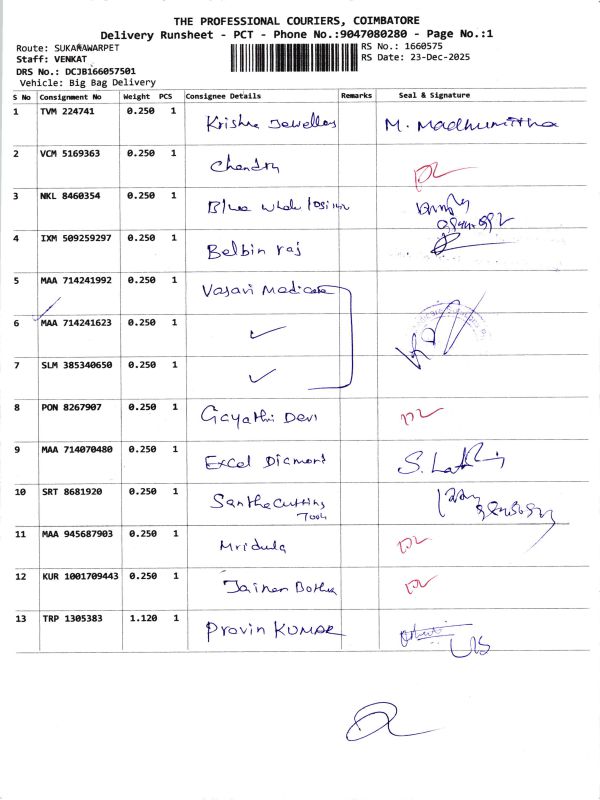 THE PROFESSIONAL COURIERS, COIMBATORE
Delivery Runsheet - PCT - Phone No.:9047080280 - Page No.:1
Route: SUKARAWARPET RS No.: 1660575
Staff: VENKAT RS Date: 23-Dec-2025
DRS No.: DCJB166057501
Vehicle: Big Bag Delivery
S No Consignment No Weight PCS Consignee Details Remarks Seal & Signature
1 TVM 224741 0.250 1 Krishna Jewellers M. Madhumittha
2 VCM 5169363 0.250 1
3 NKL 8460354 0.250 1 Blue whale
4 IXM 509259297 0.250 1 Belbin raj
5 MAA 714241992 0.250 1 Vasavi Medicare
6 MAA 714241623 0.250 1 ✓
7 SLM 385340650 0.250 1 ✓
8 PON 8267907 0.250 1 Gayathri Devi
9 MAA 714070480 0.250 1 Excel Diamond
10 SRT 8681920 0.250 1
11 MAA 945687903 0.250 1 Mridula
12 KUR 1001709443 0.250 1
13 TRP 1305383 1.120 1 Provin KUMAR